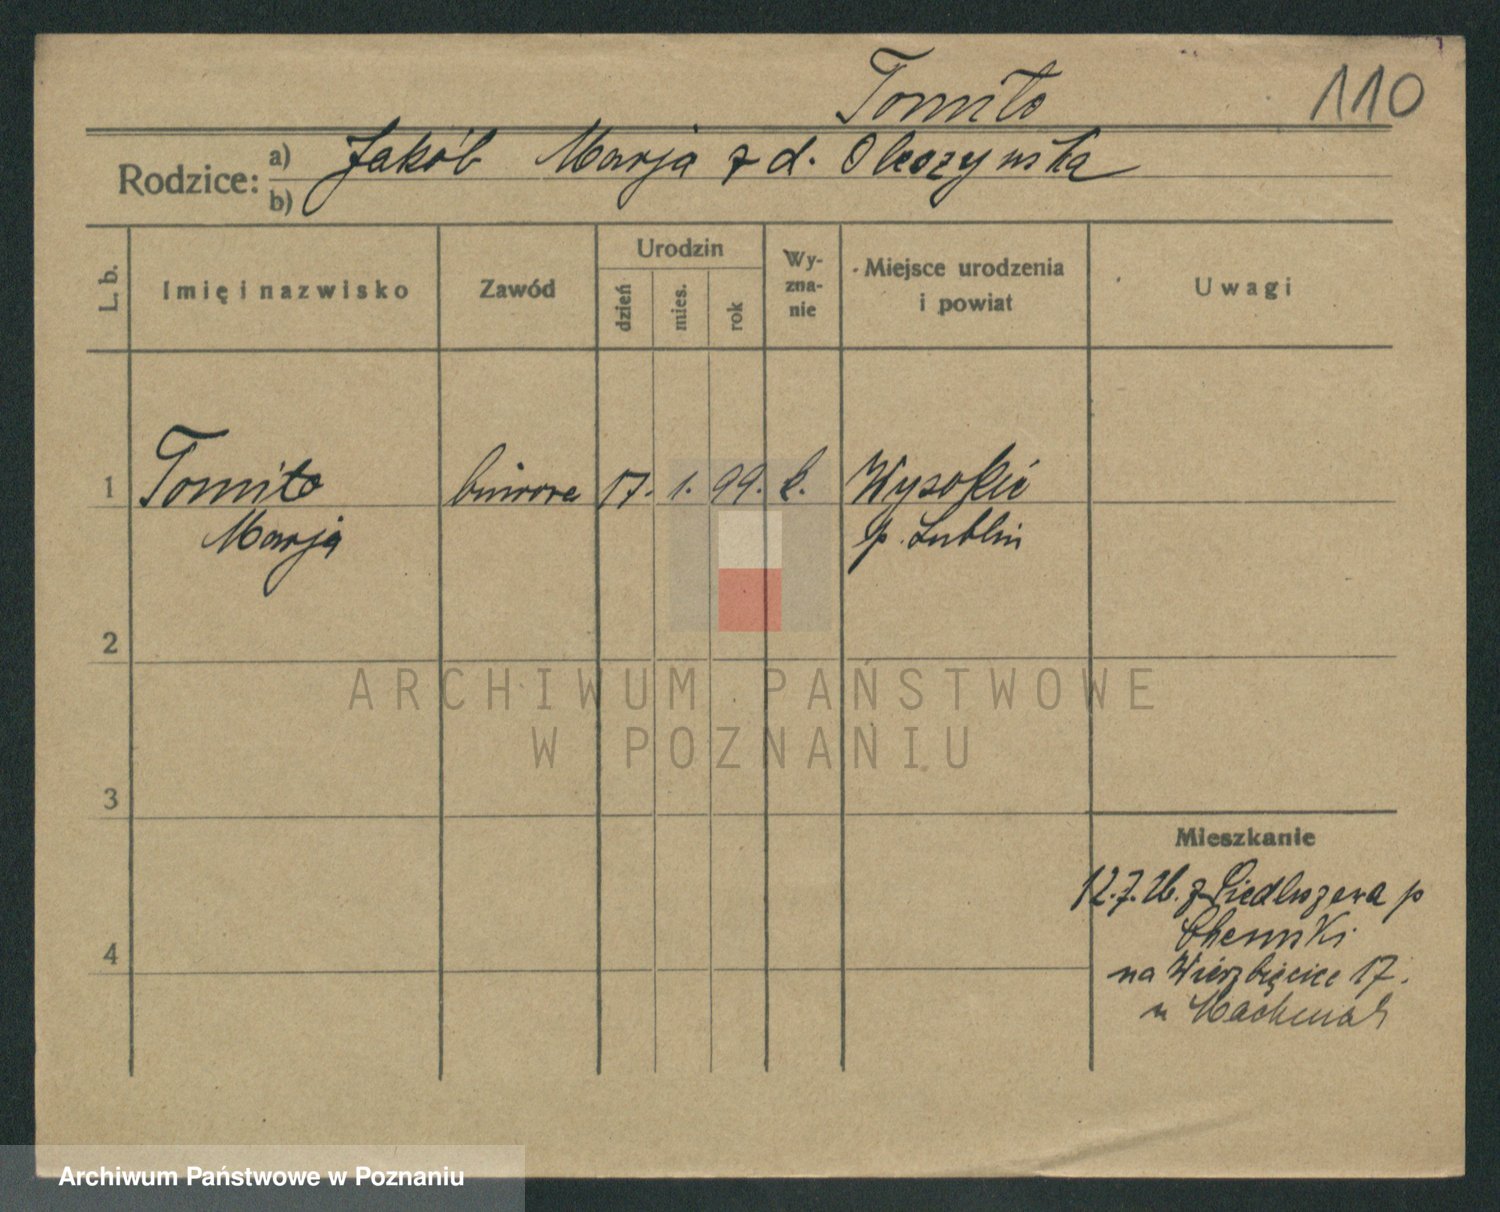 Tomiło
110
Rodzice: a) Jakób Marja z d. Oleszyńska
b)
L. b.
Imię i nazwisko
Zawód
Urodzin
dzień
mies.
rok
Wy-
zna-
nie
Miejsce urodzenia
i powiat
Uwagi
1 Tomiło biurowa 17. 1. 99. k. Wysokie
Marja p. Lublin
2
3
4
Mieszkanie
12.7.26. z p
na Wierzbięcice 17.
u
ARCHIWUM PAŃSTWOWE
W POZNANIU
Archiwum Państwowe w Poznaniu